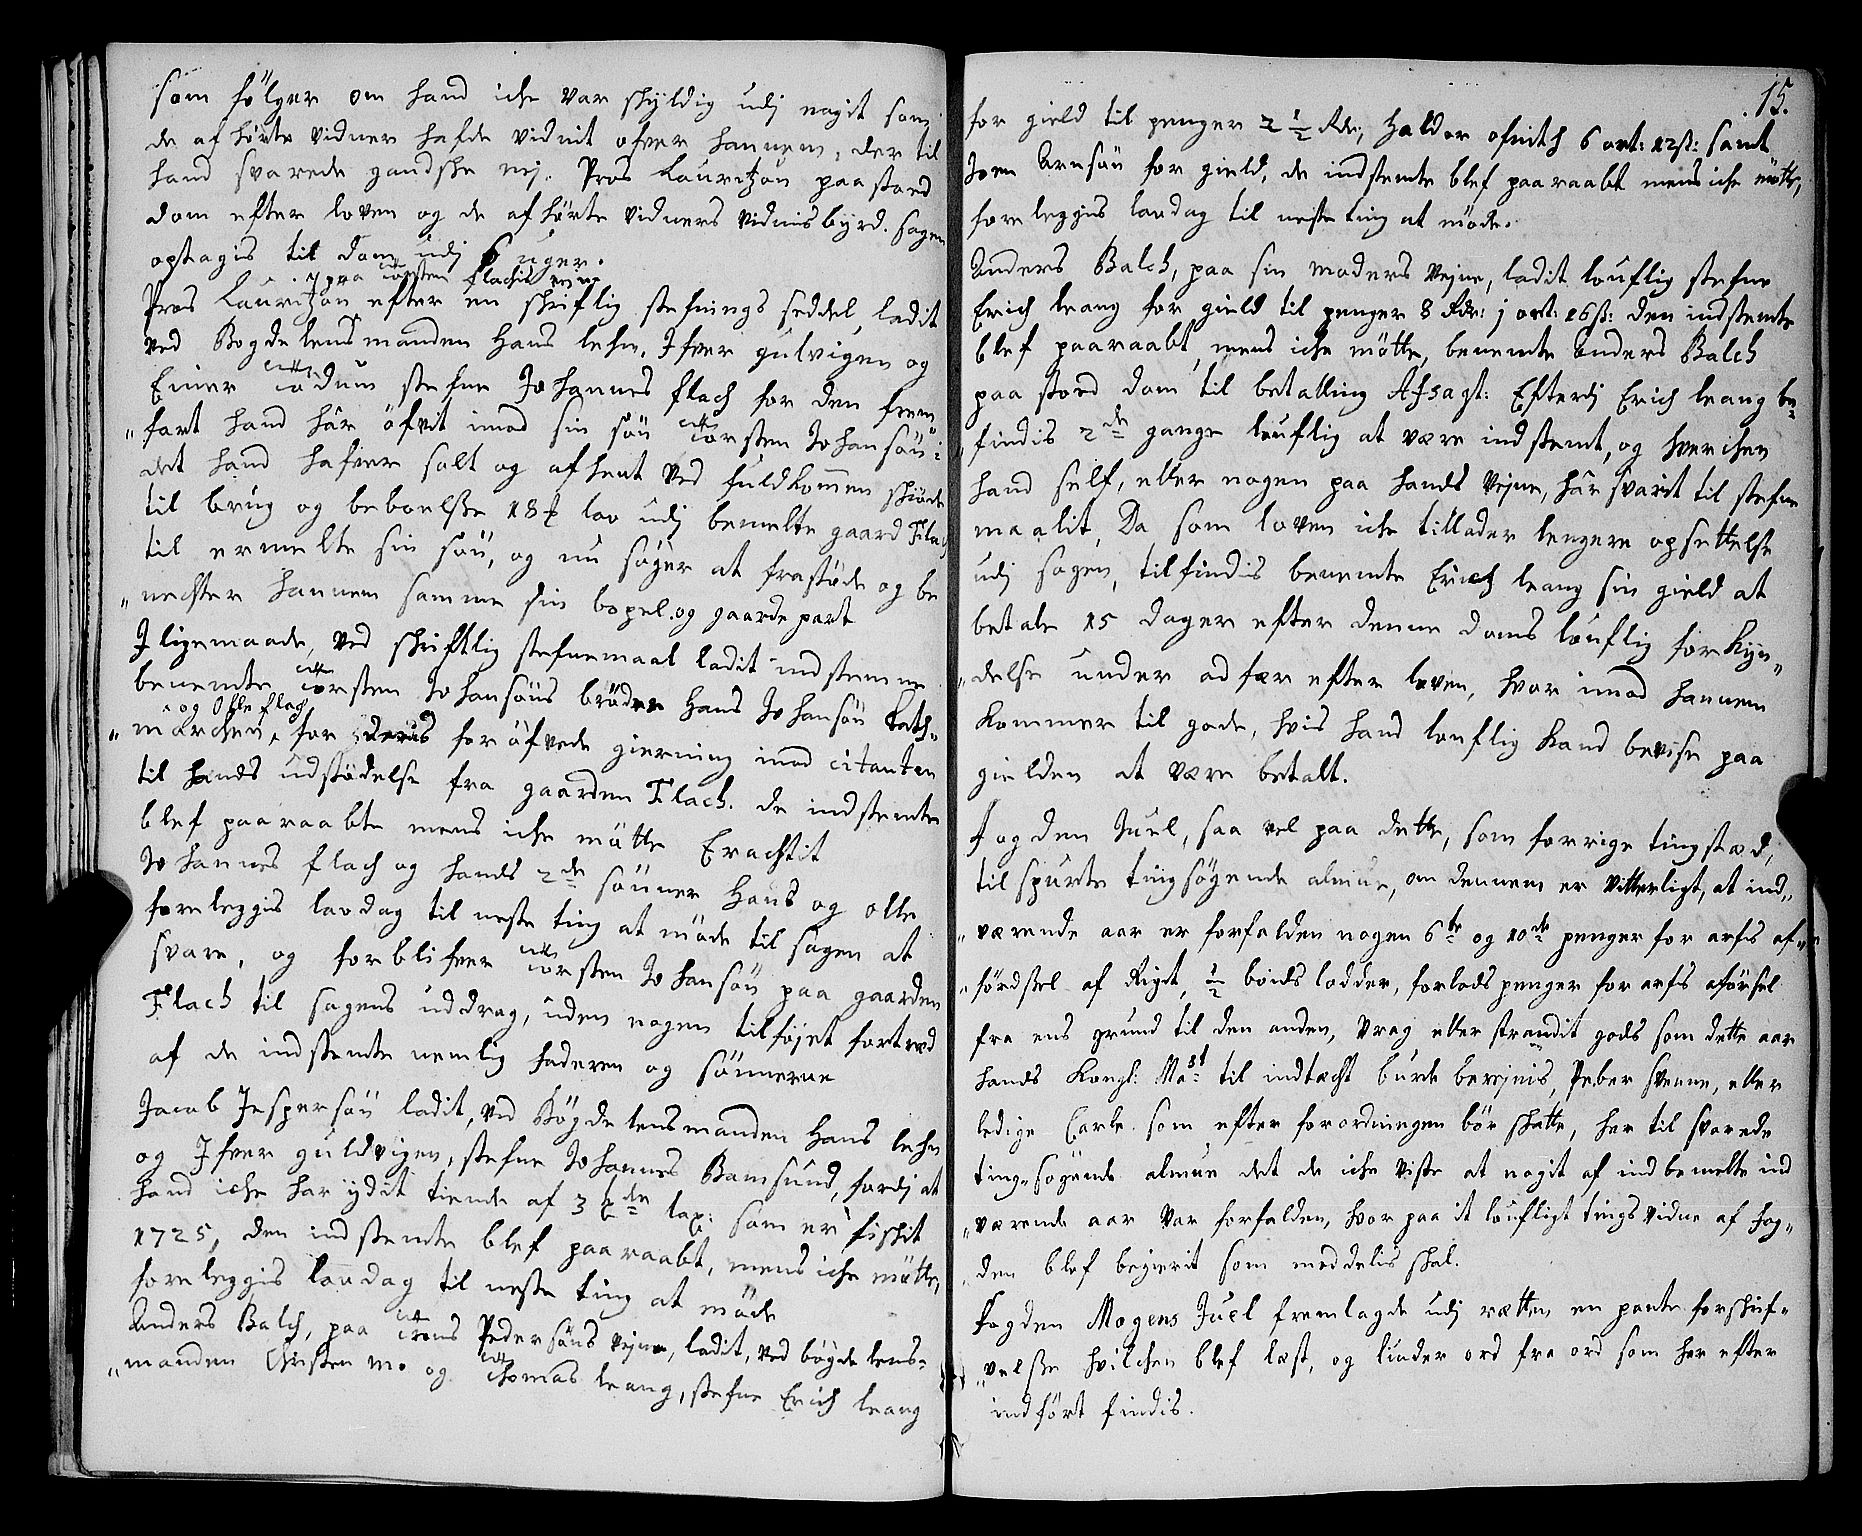 som fölger om hand iche var schyldig udj nogit som
de afhörte vidner hafde vidnit ofver hannem, der til
hand svarede gandsche nej. Pros Lauritzøn paastoed
dom efter loven og de afhörte vidners vidnisbyrd. sagen
optagis til dom udj 6 uger.
paa Torsten Flachis vejne
Pros Lauritzøn efter en schriftlig stefnings seddel, ladit
ved Bøgdelensmanden Hans lehn, Ifver gulvigen og
Einer Todum stefne Johannes flach for den frem¬
„fart hand har öfvet imod sin sön Torsten Johansön
det hand hafver solt og afhent ved fuldkommen schiöde
til brug og beboelsse 18 ℔ lav udj bemelte gaard Flach
til ermelte sin sön, og nu söger at frastöde og be
„nechter hannem samme sin bopel og gaarde part
I ligemaade, ved schriftlig stefnemaal ladit indstemne
benemte Torsten Johansöns brödre Hans Johansön
og Olle flach
„marchen, for deris foröfvede gierning imod citanten
til hands udstödelse fra gaarden Flach. de indstemte
blef paaraabte mens iche mötte Erachtit
Johannes flach og hands 2de sönner Hans og olle
foreleggis lavdag til neste ting at möde til sagen at
svare, og forblifver Torsten Johansön paa gaarden
Flach til sagens uddrag, uden nogen tilföjet fortræd
af de indstemte nemlig faderen og sönnerne
Jacob Jespersön ladit, ved Bögdelensmanden Hans lehn
og Ifver guldvigen, stefne Johannes Bamsund, fordj at
hand iche har ydit tiende af 3 ℔de lax: som er fischit
1725, den indstemte blef paaraabt, mens iche mötte,
foreleggis laudag til neste ting at möde
Anders Balch, paa Trons Pedersöns vejne, ladit, ved bögde lens¬
„manden Christen mo og Thomas leang, stefne Erich leang
15.
for gield til penger 2 1/2 Rdr, Haldor ofnith 6 ort: 12 ß: samt
Joen Arnsön for gield, de indstemte blef paaraabt mens iche mötte,
foreleggis laudag til neste ting at möde.
Anders Balch, paa sin moders vejne, ladit louflig stefne
Erich leang for gield til penger 8 Rdr: j ort: 16 ß: den indstemte
blef paaraabt, mens iche mötte, benemte Anders Balch
paastoed dom til betalling Afsagt: Efterdj Erich leang be¬
„findis 2de gange louflig at være indstemt, og hverchen
hand self, eller nogen paa hands vejne, har svarit til stefne
maalit, Da som loven iche tillader lengere opsettelse
udj sagen, tilfindis benemte Erich leang sin gield at
betale 15 dager efter denne doms louflig forkyn¬
„delse under adfær efter loven, hvor imod hannem
kommer til gode, hvis hand louflig kand bevise paa
gielden at være betalt.
Fogden Juel, saa vel paa dette, som forrige tingsted,
tilspurte tingsögende almue, om dennem er vitterligt, at ind¬
„værende aar er forfalden nogen 6te og 10de penger for arfs af¬
„fördsel af Riget, 1/2 boids lodder, forlods penger for arfs aförsel
fra ens grund til den anden, vrag eller strandit gods som dette aar
hands Kongl: Mast: til indtæcht burde beregnis, Peber Svenne, eller
ledige Carle som efter forordningen bör schatte, her til svarede
ting-sögende almue det de iche viste at nogit af indbemelte ind
„værende aar var forfalden, hvor paa it loufligt tingsvidne af fog¬
„den blef begierit som meddelis schal.
Fogden Mogens Juel fremlagde udj rætten en pante forschrif¬
„velsse hvilchen blef læst, og liuder ord fra ord som her efter
indfört findis.